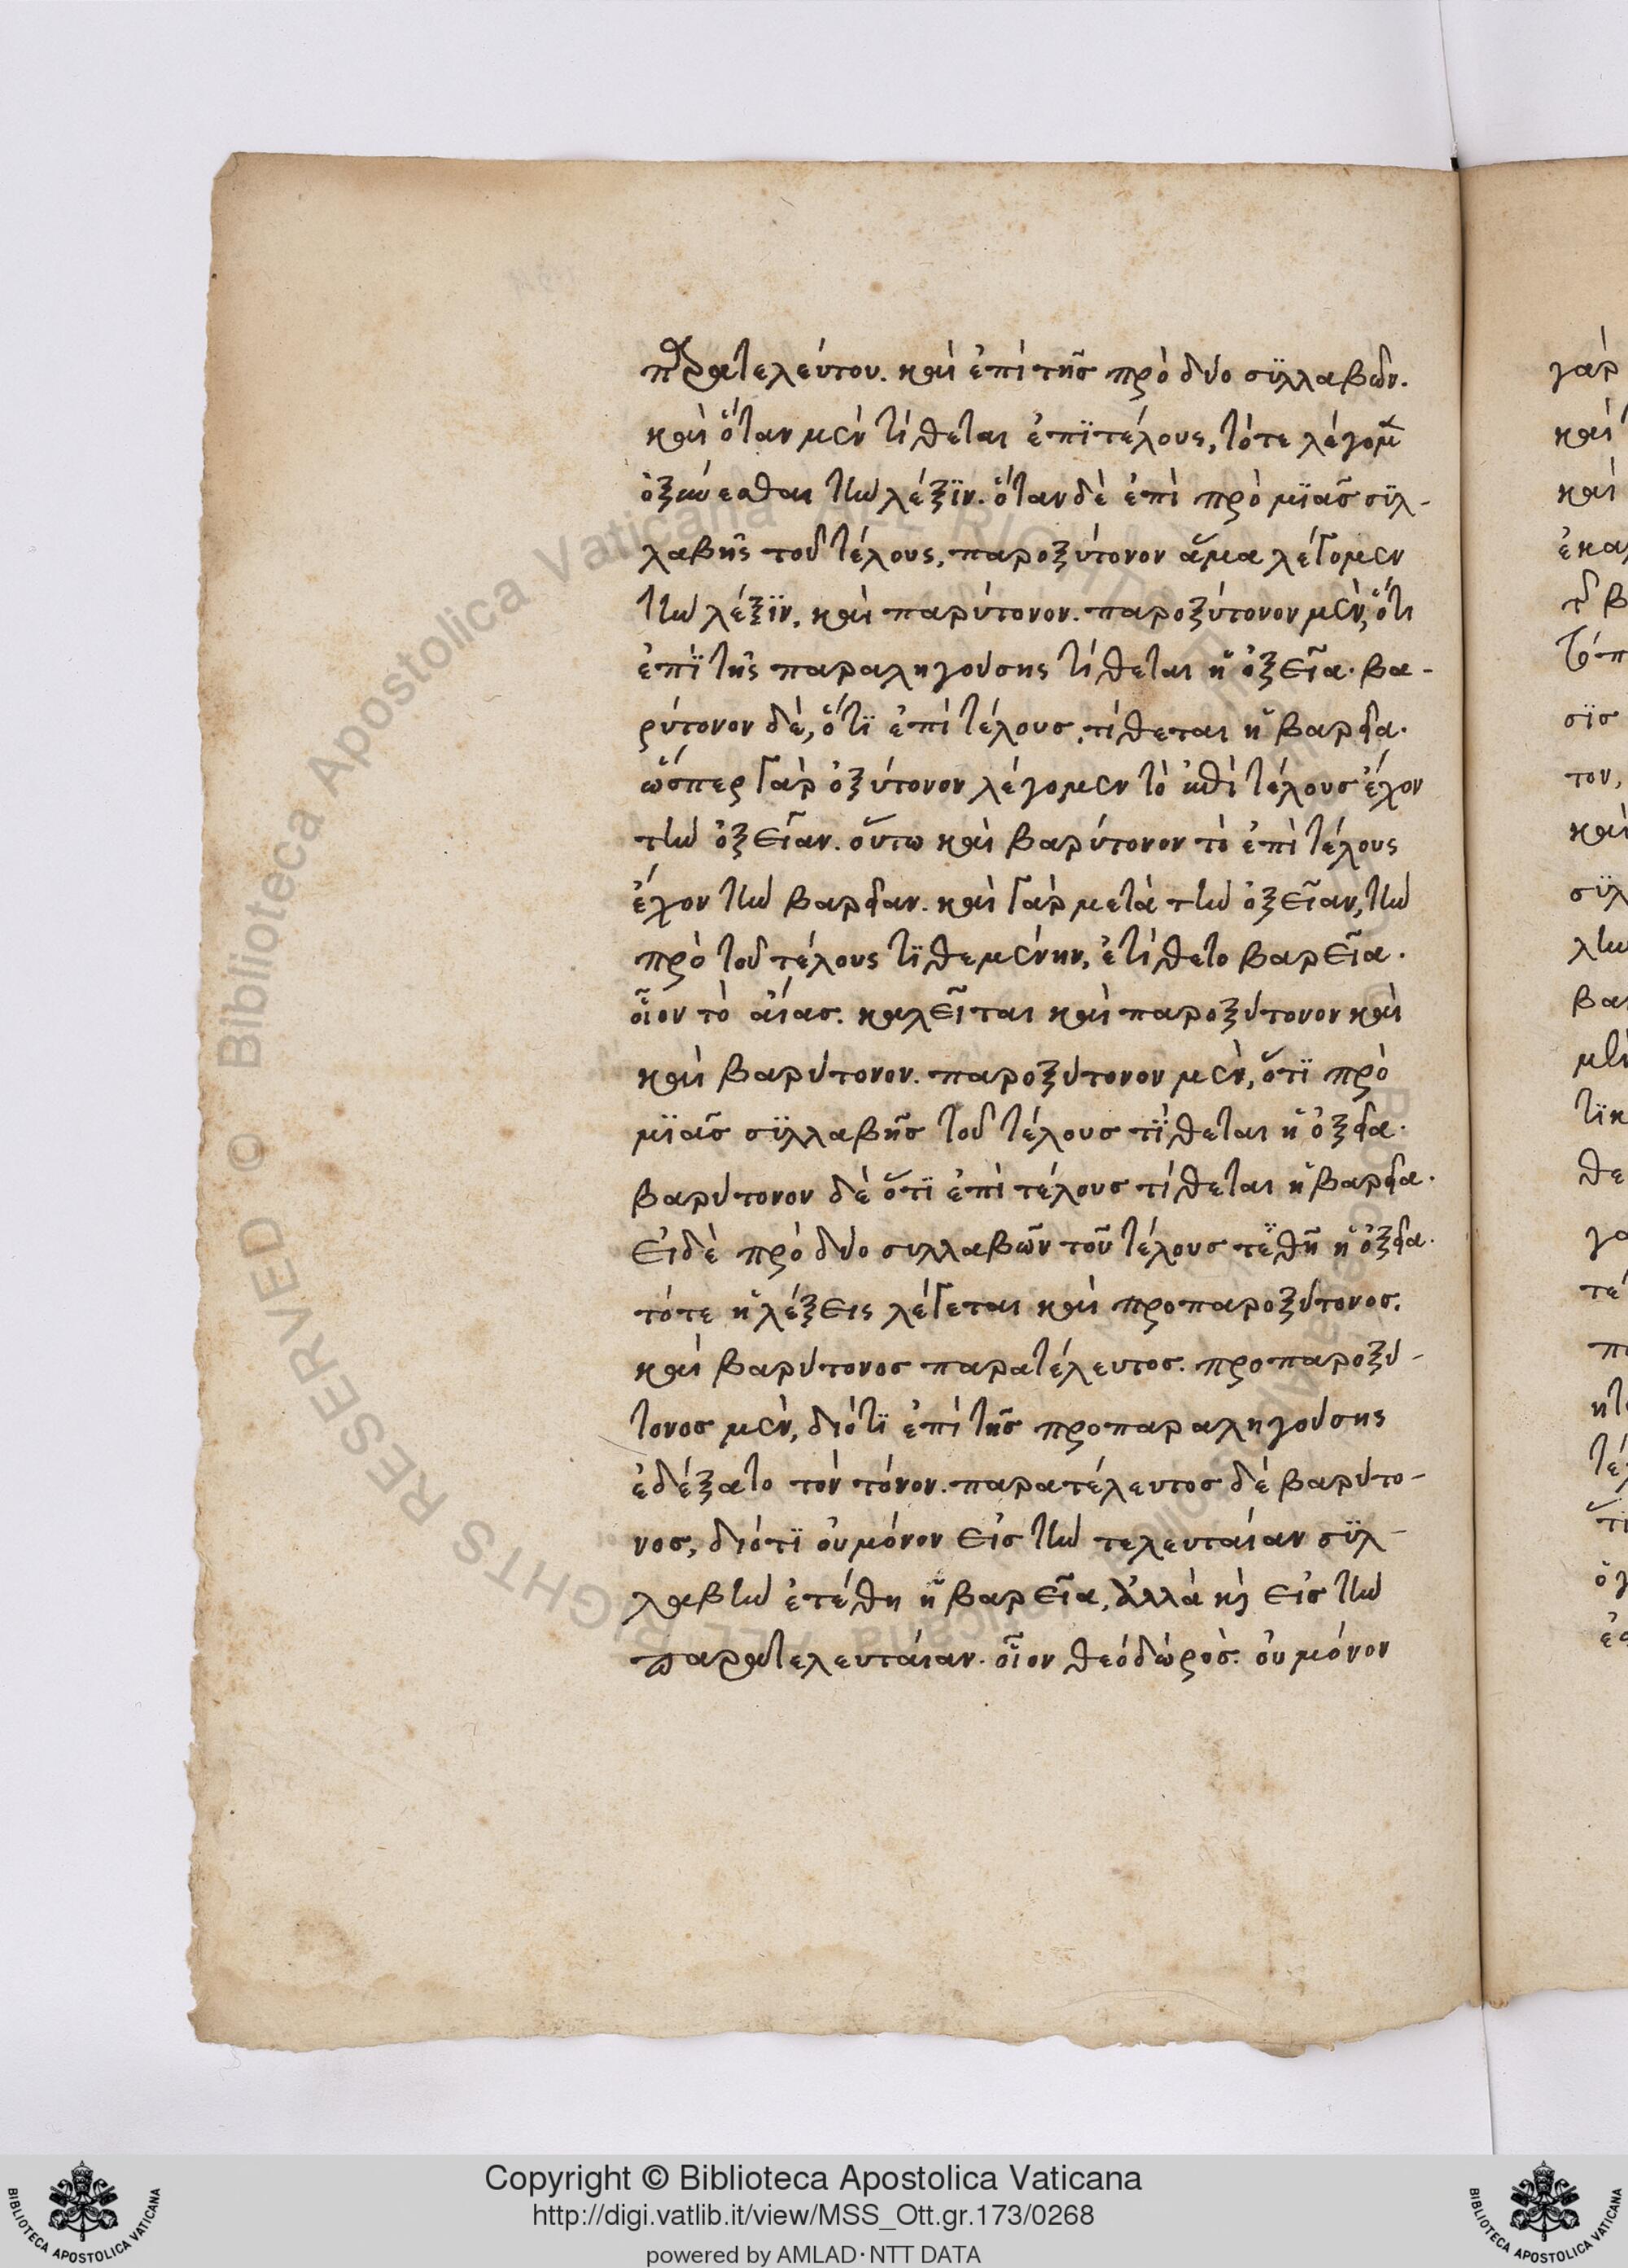 παρατελεύτου. καὶ ἐπὶ τῆς πρὸ δύο σϋλλαβῶν.
καὶ ὅταν μὲν τίθεται ἐπϊτέλους, τότε λέγομεν
ὀξύνεσθαι τὴν λέξϊν. ὅταν δὲ ἐπὶ πρὸ μϊᾶς σϋλ-
λαβῆς τοῦ τέλους, παροξύτονον ἅμα λέγομεν
τὴν λέξϊν, καὶ παρύτονον. παροξύτονον μὲν, ὅτι
ἐπϊ τῆς παραληγούσης τίθεται ἡ ὀξεῖα. βα-
ρύτονον δὲ, ὅτϊ ἐπὶ τέλους, τίθεται ἡ βαρεῖα.
ὥσπερ γὰρ ὀξύτονον λέγομεν τὸ ἐπὶ τέλους ἔχον
τὴν ὀξεῖαν. οὕτω καὶ βαρύτονον τὸ ἐπὶ τέλους
ἔχον τὴν βαρεῖαν. καὶ γὰρ μετὰ τὴν ὀξεῖαν, τὴν
πρὸ τοῦ τέλους τϊθεμένην, ἐτίθετο βαρεῖα.
οἷον τὸ αἴας. καλεῖται καὶ παροξύτονον καὶ
καὶ βαρύτονον. παροξύτονον μὲν, ὅτϊ πρὸ
μϊᾶς σϋλλαβῆς τοῦ τέλους τΐθεται ἡ ὀξεῖα.
βαρύτονον δὲ ὅτϊ ἐπὶ τέλους τίθεται ἡ βαρεῖα.
Εἰδὲ πρὸ δύο συλλαβῶν τοῦ τέλους τεθῆ ἡ ὀξεῖα.
τότε ἡ λέξεις λέγεται καὶ προπαροξύτονος.
καὶ βαρύτονος παρατέλευτος. προπαροξύ-
τονος μὲν, διότϊ ἐπὶ τῆς προπαραληγούσης
ἐδέξατο τὸν τόνον. παρατέλευτος δὲ βαρύτο-
νος, διότϊ οὐ μόνον εἰς τὴν τελευταίαν σϋλ-
λαβὴν ἐτέθη ἡ βαρεῖα, ἀλλὰ κὶ εἰς τὴν
παρατελευταίαν. οἷον θεόδὼρὸς. οὐ μόνον
Copyright © Biblioteca Apostolica Vaticana
http://digi.vatlib.it/view/MSS_Ott.gr.173/0268
powered by AMLAD·NTT DATA